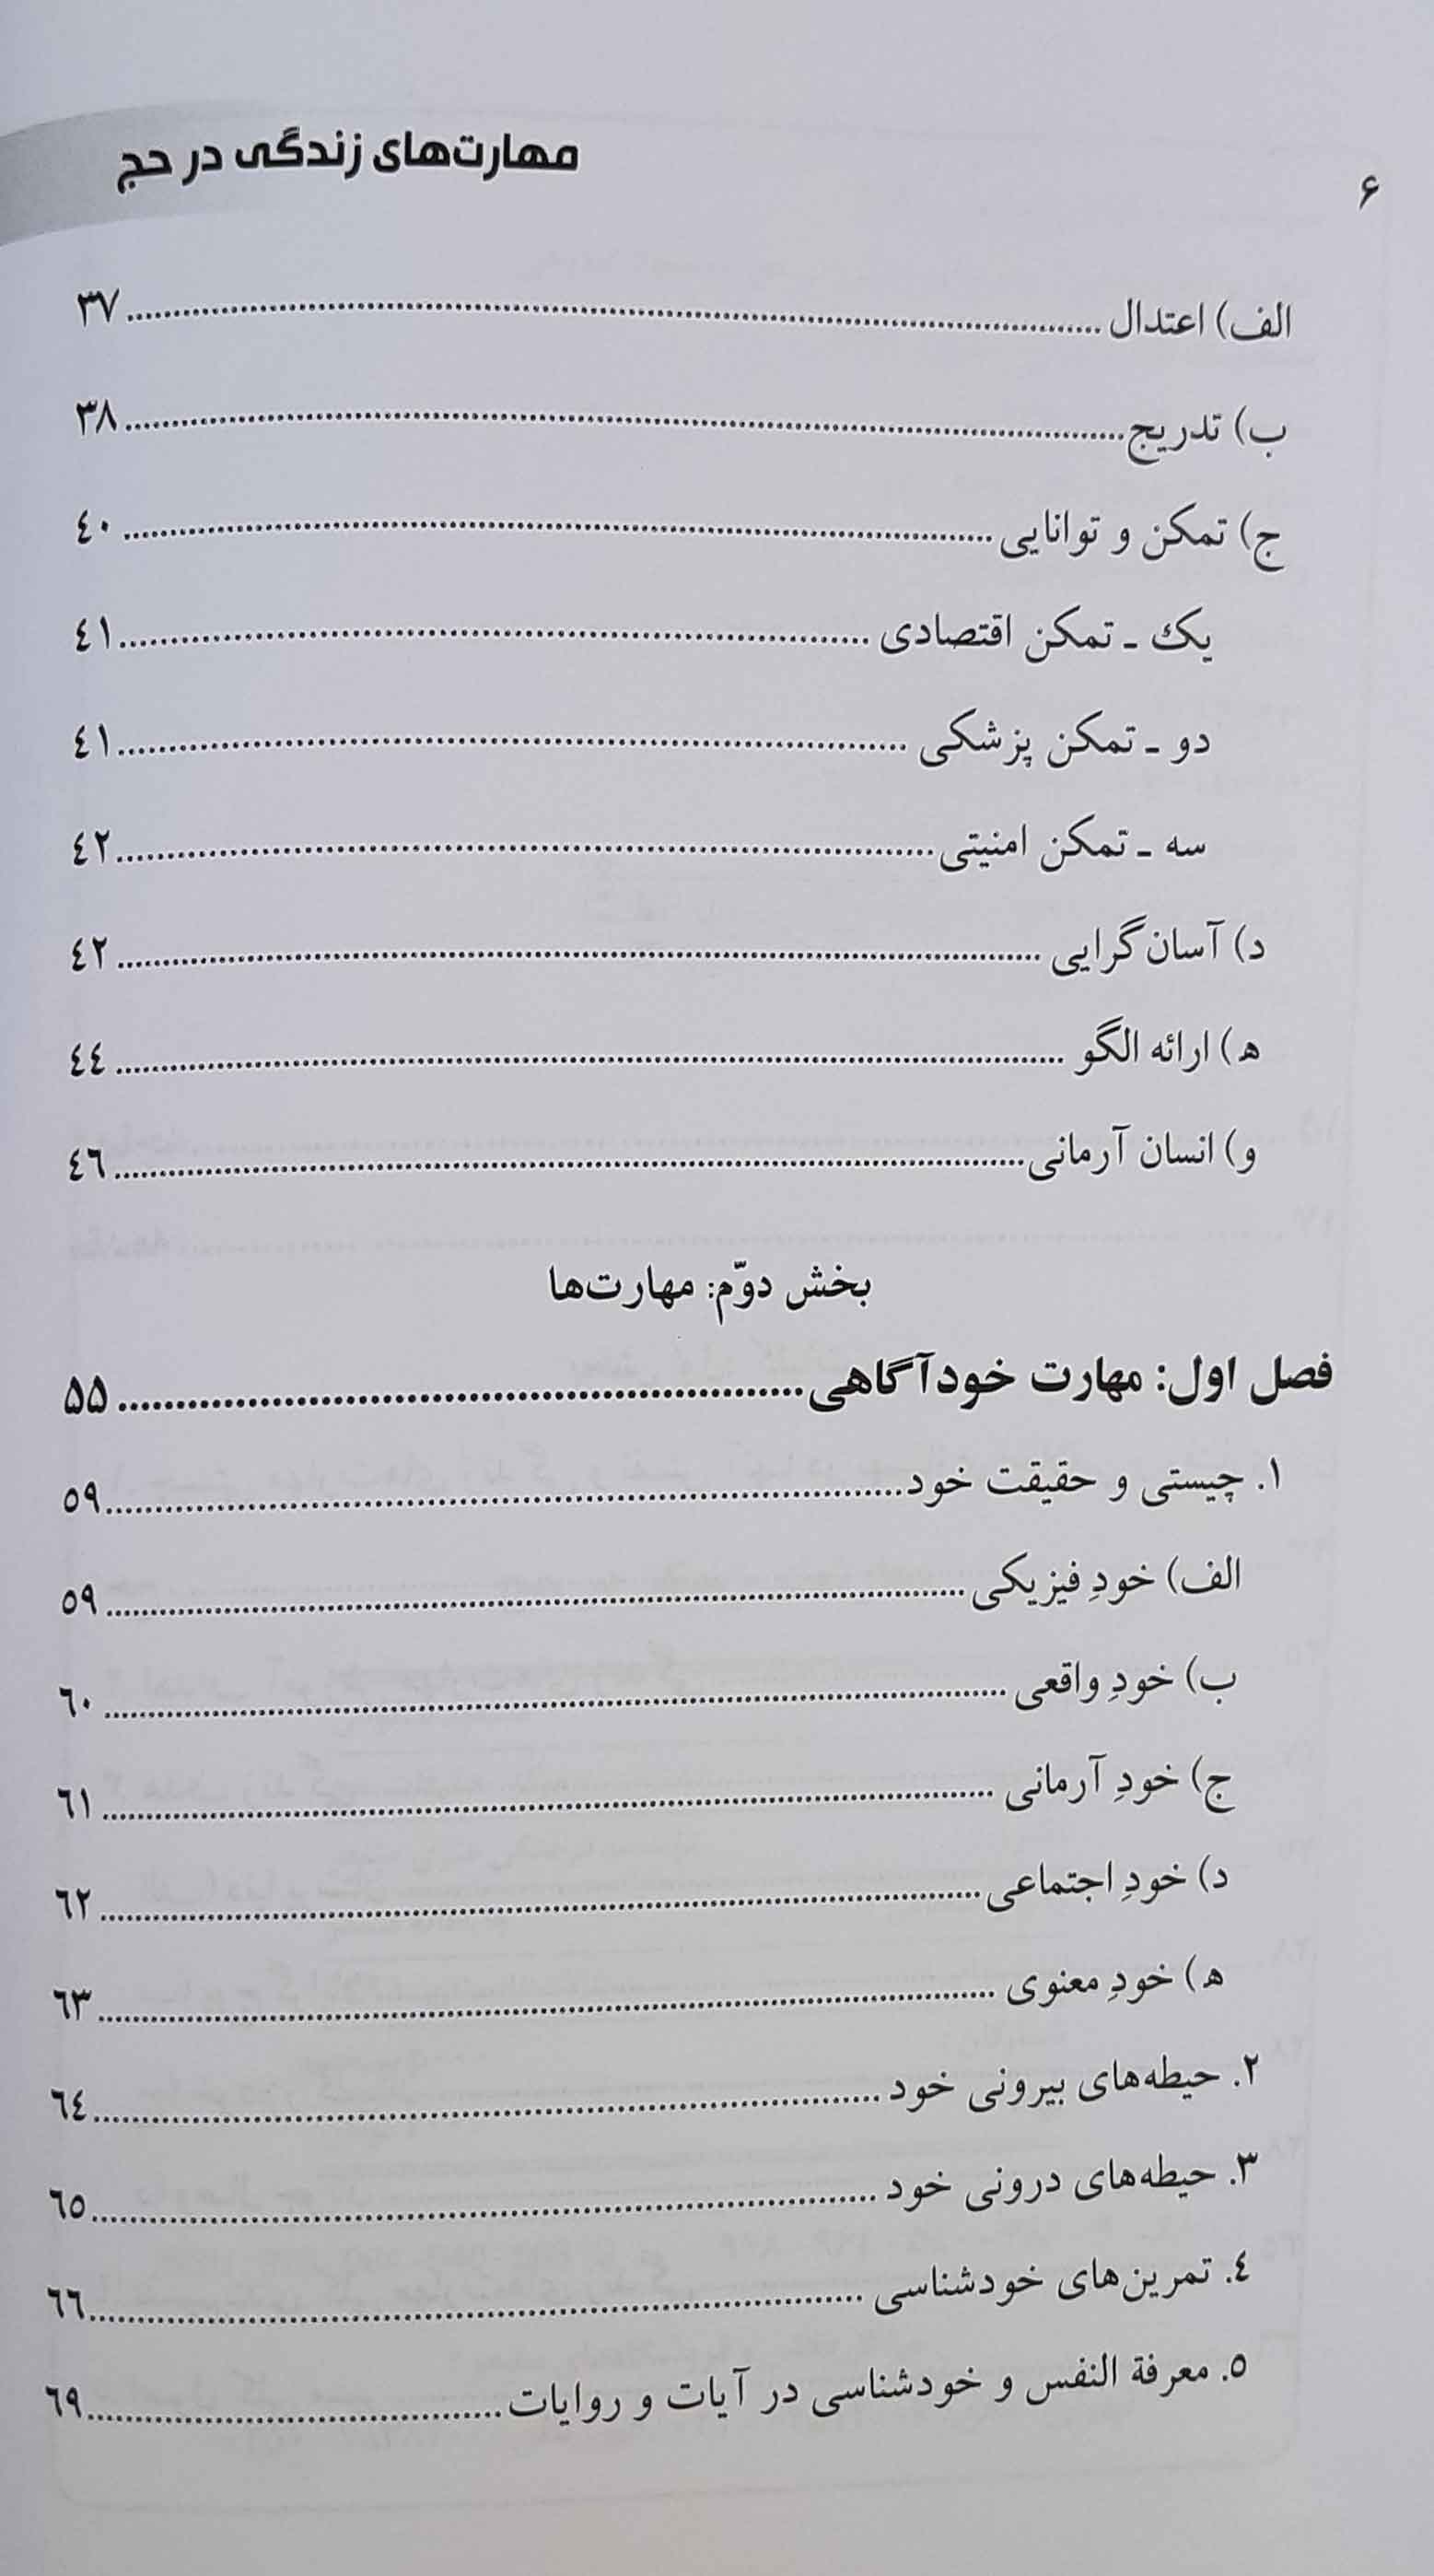 ۶
مهارت‌های زندگی در حج
الف) اعتدال ........ ۳۷
ب) تدریج ........ ۳۸
ج) تمکن و توانایی ........ ٤٠
یک ـ تمکن اقتصادی ........ ٤١
دو ـ تمکن پزشکی ........ ٤١
سه ـ تمکن امنیتی ........ ٤٢
د) آسان‌گرایی ........ ٤٢
ه) ارائه الگو ........ ٤٤
و) انسان آرمانی ........ ٤٦
بخش دوّم: مهارت‌ها
فصل اول: مهارت خودآگاهی ........ ۵۵
١. چیستی و حقیقت خود ........ ٥٩
الف) خودِ فیزیکی ........ ٥٩
ب) خودِ واقعی ........ ٦٠
ج) خودِ آرمانی ........ ٦١
د) خودِ اجتماعی ........ ٦٢
ه) خودِ معنوی ........ ٦٣
٢. حیطه‌های بیرونی خود ........ ٦٤
٣. حیطه‌های درونی خود ........ ٦٥
٤. تمرین‌های خودشناسی ........ ٦٦
٥. معرفة النفس و خودشناسی در آیات و روایات ........ ٦٩